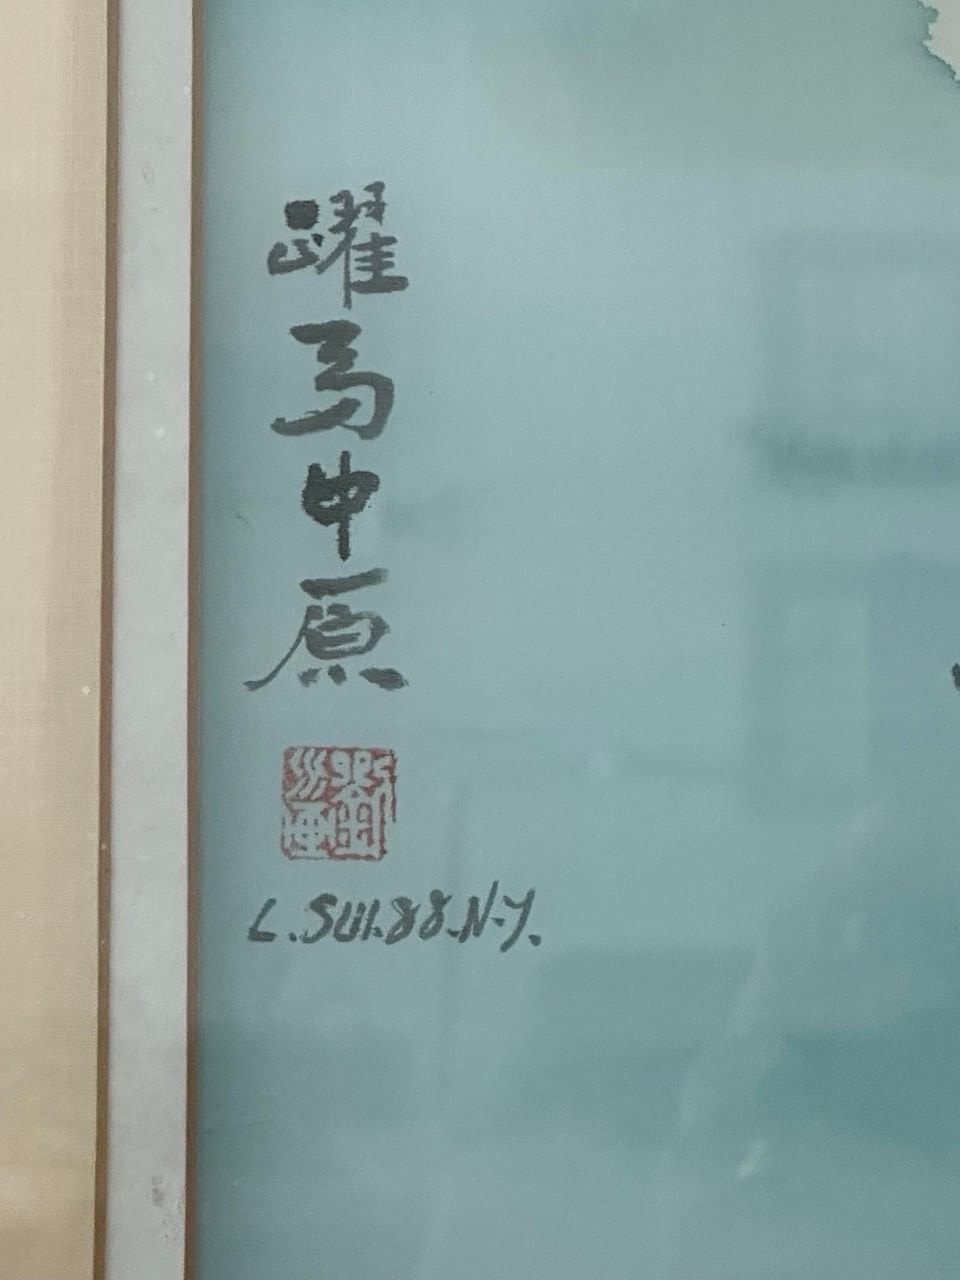 躍馬中原
劉
L.SUI.88.N.Y.